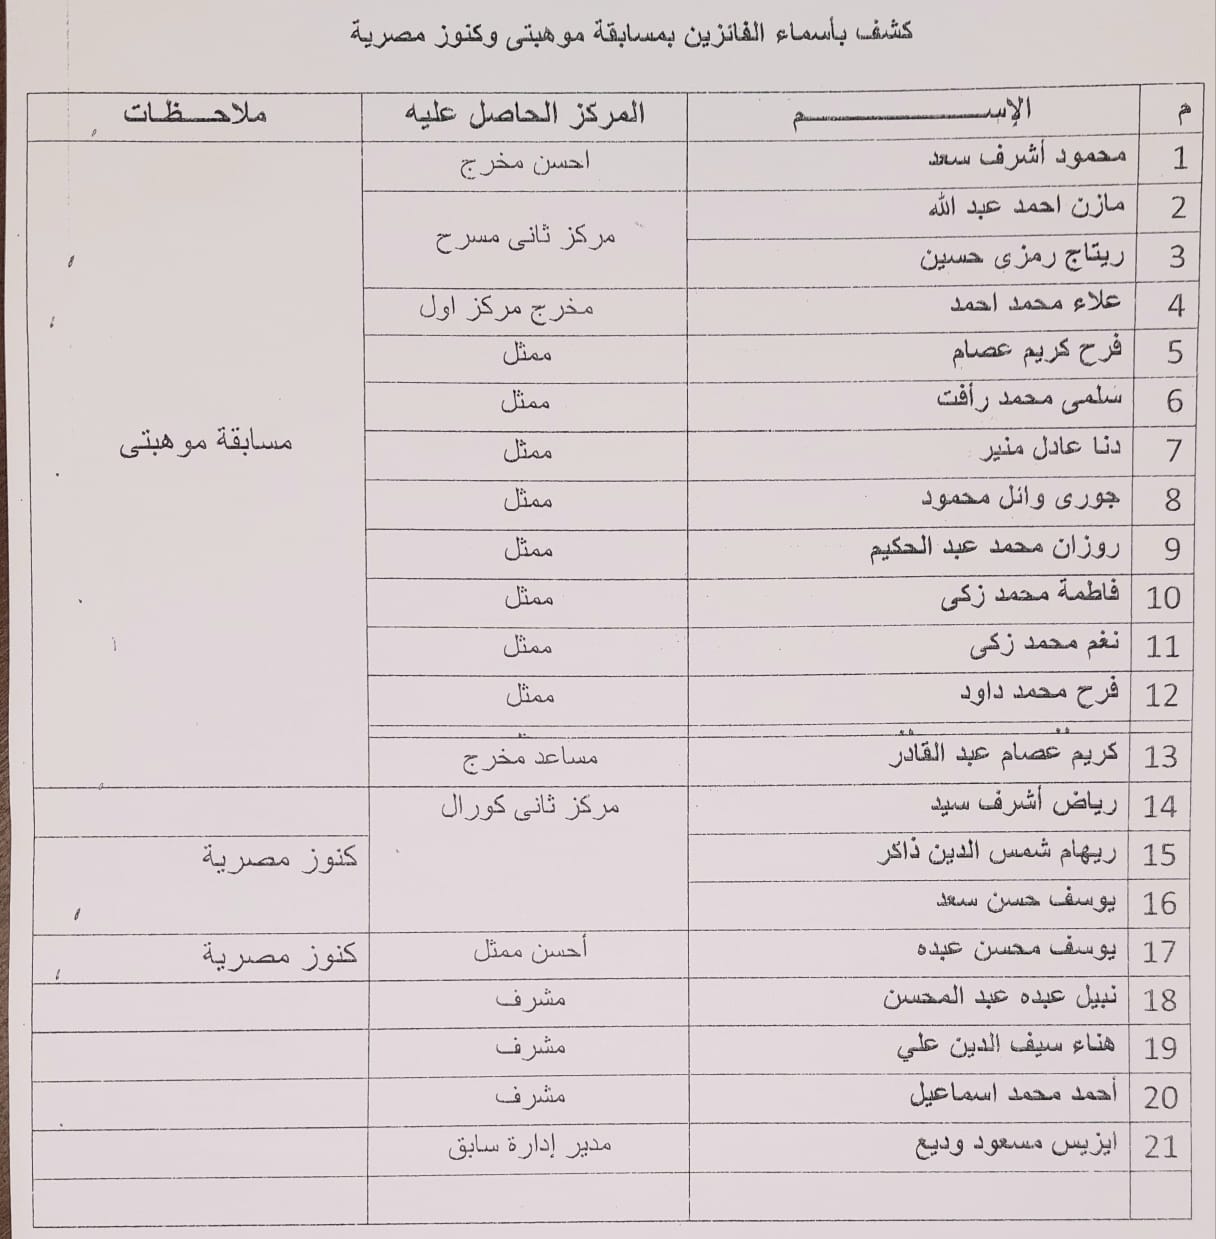 كشف بأسماء الفائزين بمسابقة موهبتى وكنوز مصرية
م الإســـــــم المركز الحاصل عليه ملاحـــظـات
1 محمود أشرف سعد احسن مخرج
2 مازن احمد عبد الله مركز ثانى مسرح
3 ريتاج رمزى حسين
4 علاء محمد احمد مخرج مركز اول
5 فرح كريم عصام ممثل
6 سلمى محمد رأفت ممثل
7 دنا عادل منير ممثل مسابقة موهبتى
8 جورى وائل محمود ممثل
9 روزان محمد عبد الحكيم ممثل
10 فاطمة محمد زكى ممثل
11 نغم محمد زكى ممثل
12 فرح محمد داود ممثل
13 كريم عصام عبد القادر مساعد مخرج
14 رياض أشرف سيد مركز ثانى كورال
15 ريهام شمس الدين ذاكر كنوز مصرية
16 يوسف حسن سعد
17 يوسف محسن عبده أحسن ممثل كنوز مصرية
18 نبيل عبده عبد المحسن مشرف
19 هناء سيف الدين علي مشرف
20 أحمد محمد اسماعيل مشرف
21 ايزيس مسعود وديع مدير إدارة سابق